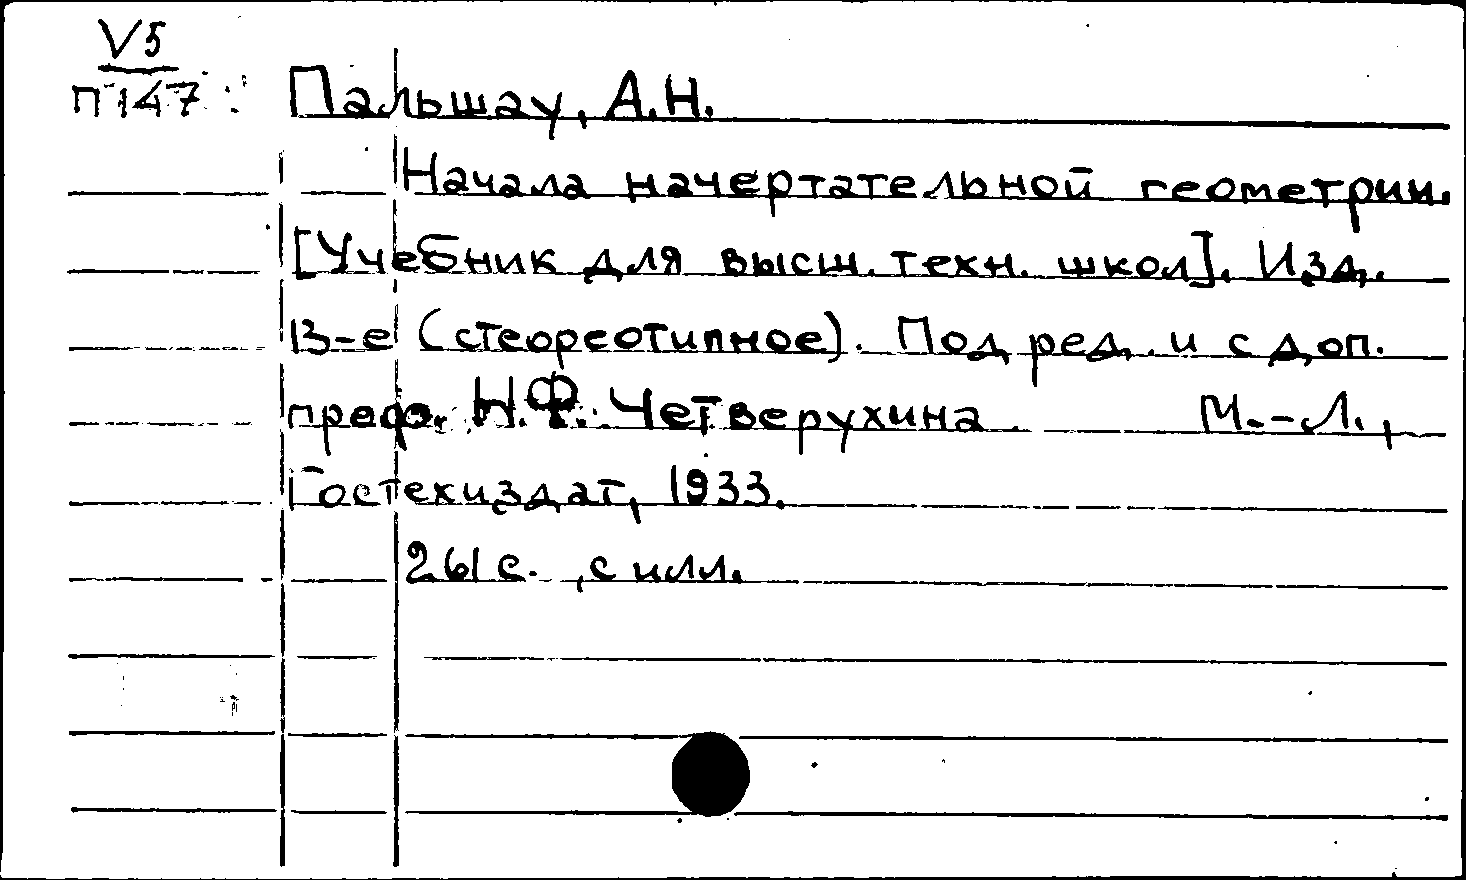 V5
П147
Пальшау, А.Н.
Начала начертательной геометрии.
[Учебник для высш. техн. школ]. Изд.
13-е (стеореотипное). Под ред. и с доп.
проф. Н.Ф. Четверухина М.-Л.,
Гостехиздат, 1933.
261 с. , с илл.